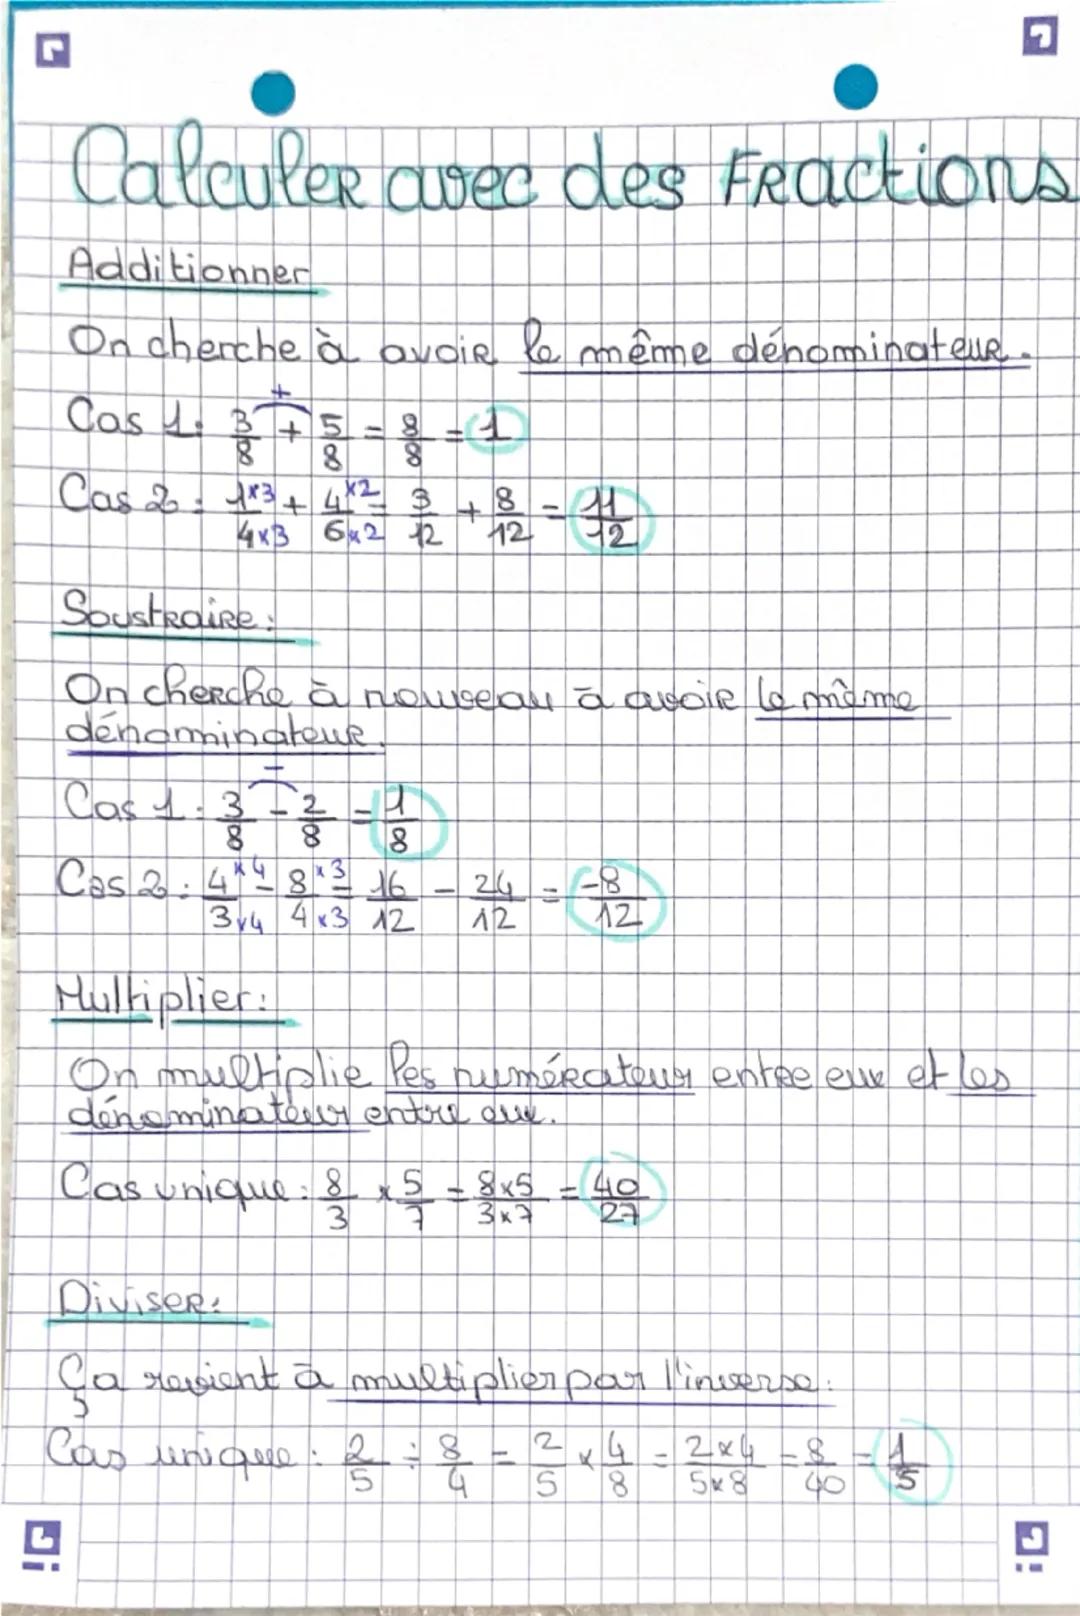 Calculer avec des Fractions
Additionner
On cherche à avoir le même dénominateur.
+
Cas 1: 3/8 + 5/8 = 8/8 = 1
Cas 2: 1×3/4×3 + 4×2/6×2 = 3/12 + 8/12 = 11/12
Soustraire:
On cherche à nouveau à avoir le même
dénominateur.
-
Cas 1: 3/8 - 2/8 = 1/8
Cas 2: 4×4/3×4 - 8×3/4×3 = 16/12 - 24/12 = -8/12
Multiplier:
On multiplie les numérateur entre eux et les
dénominateur entre eux.
Cas unique: 8/3 × 5/7 = 8×5/3×7 = 40/27
Diviser:
Ça revient à multiplier par l'inverse:
Cas unique: 2/5 ÷ 8/4 = 2/5 × 4/8 = 2×4/5×8 = 8/40 = 1/5